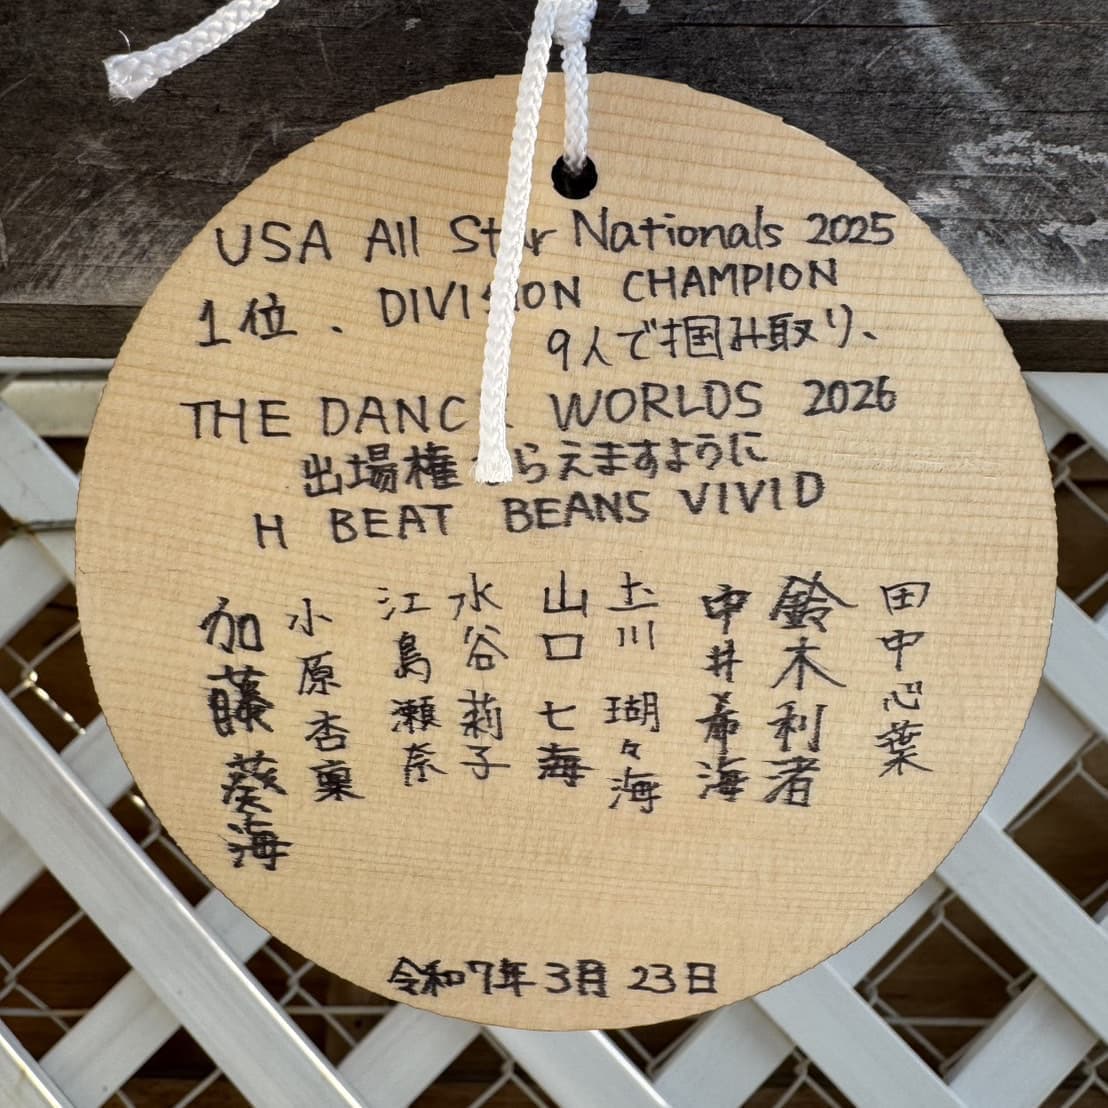 USA All Star Nationals 2025
1位、DIVISION CHAMPION
9人で掴み取り、
THE DANCE WORLDS 2026
出場権もらえますように
H BEAT BEANS VIVID
田中心葉
鈴木利者
中井希海
土川 瑚々海
山口 七海
水谷莉子
江島瀬奈
小原杏
加藤葵海
令和7年3月23日